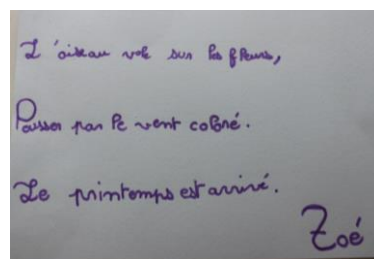 L'oiseau vole sur les fleurs,
Passer par le vent coloré.
Le printemps est arrivé.
Zoé